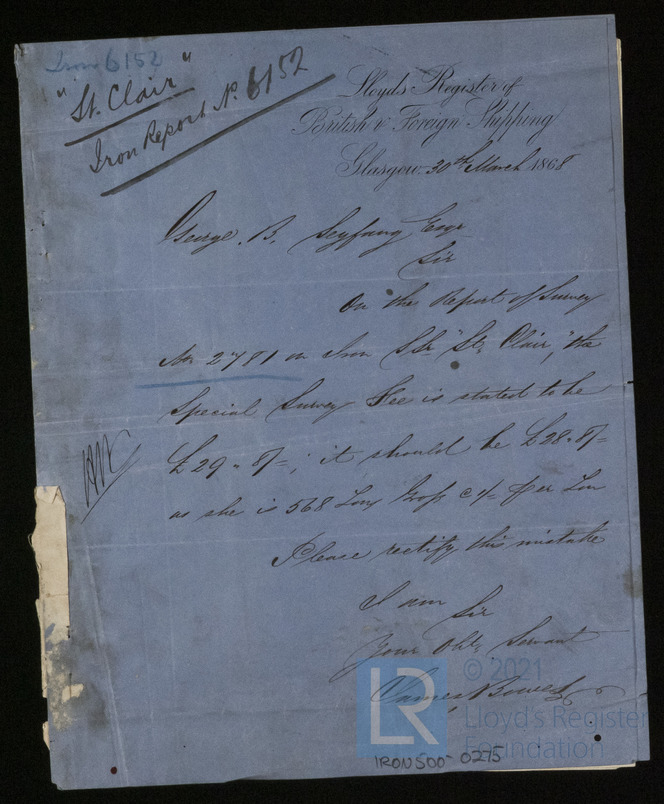 Iron 6152
"St. Clair"
Iron Report No. 6152
Lloyd's Register of
British & Foreign Shipping
Glasgow 30th March 1868
George. B. Seyfang Esqr
Sir
On the Report of Survey
No. 2781 on Iron SSr "St. Clair," the
Special Survey Fee is stated to be
£29 " 8/=; it should be £28 " 8/=
as she is 568 Tons Gross @ 1/= per Ton
Please rectify this mistake
I am Sir
Your Obt. Servant
James
LR
© 2021
Lloyd's Register
Foundation
IRON500-0275